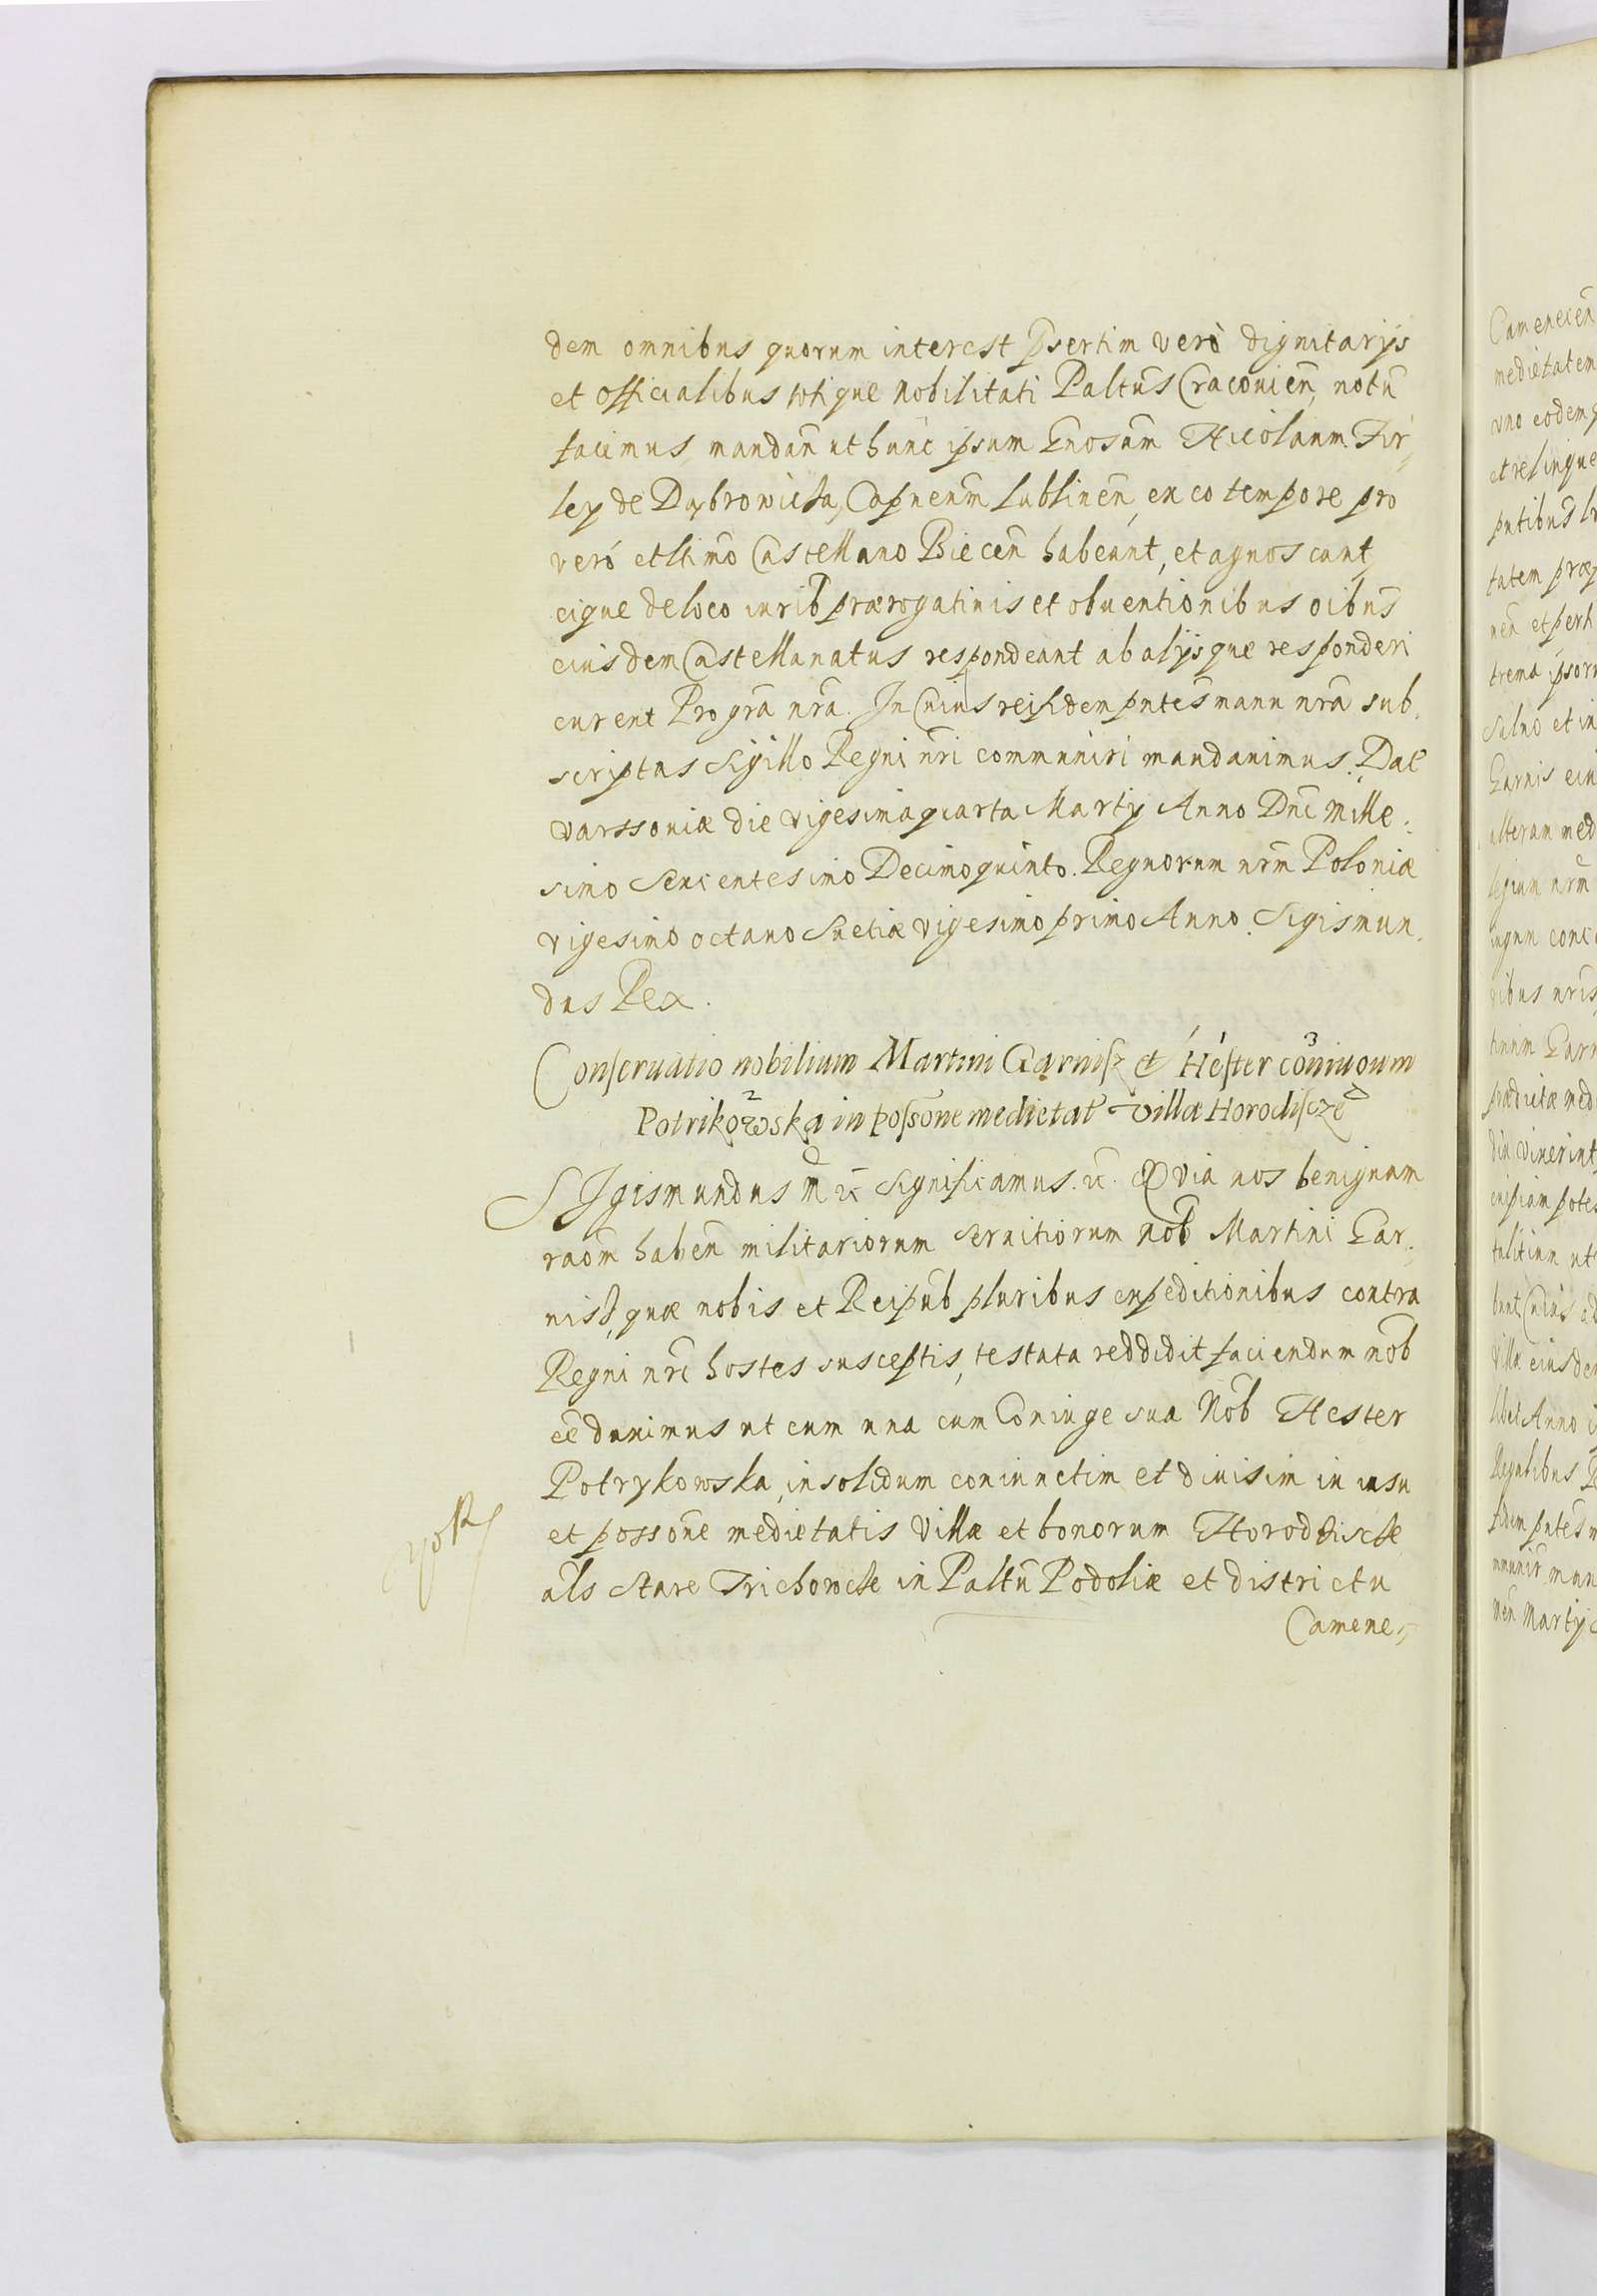 dem omnibus quorum interest p̃sertim verò dignitarijs
et officialibus totique Nobilitati Paltũs Cracouien̄, notũ
facimus mandan̄ ut hunc ipsum Gnosum̄ Nicolaum Fir-
ley de Dąbrowicza, Capneum̄ Lublinen̄, ex eo tempore pro
veró et ltimo Castellano Biecen̄ habeant, et agnoscant,
eique de loco iurib̄ prærogatiuis et obuentionibus oibus̄
eiusdem Castellanatus respondeant ab alijsque responderi
curent Pro grã nrã. In Cuius rei fidem pntes̄ manu nrã sub-
scriptas Sigillo Regni nri communiri mandauimus. Dat
Varssouiæ die vigesima quarta Martij Anno Dni Mille-
simo Sexcentesimo Decimo quinto. Regnorum nrm̄ Poloniæ
vigesimo octauo Suetiæ vigesimo primo Anno. Sigismun-
dus Rex.
Conseruatio nobilium Martini Garnisz et Hester coniugum
Potrikowska in possone medietat villæ Horodiscze
SIgismundus III etc Significamus. etc. Quia nos benignam
raom̄ haben̄ militariorum seruitiorum Nob̄ Martini Gar-
nisz, quæ nobis et Reipub̄ pluribus expeditionibus contra
Regni nri hostes susceptis, testata reddidit faciendum nob̄
eē duximus ut eum una cum Coniuge sua Nob̄ Hester
Potrykowska, insolidum coniunctim et diuisim in usu
et possone medietatis Villæ et bonorum Horoddiscze
als Stare Trichowcze in Paltũ Podoliæ et districtu
Camene-
Camenecen̄
medietatem
uno eodemq
et relinque
pntibus̄
tatem præ
nen̄ et perh
trema ipsor
Saluo et in
Garnis eiu
alteram med
legium nrm̄
nris
tinum Garn
prædictæ med
diu vixerint
cuipiam potes
bunt Cuius
Villæ eiusdem
libet Anno
Regalibus
fidem pntes̄ m
muniri man
Martij